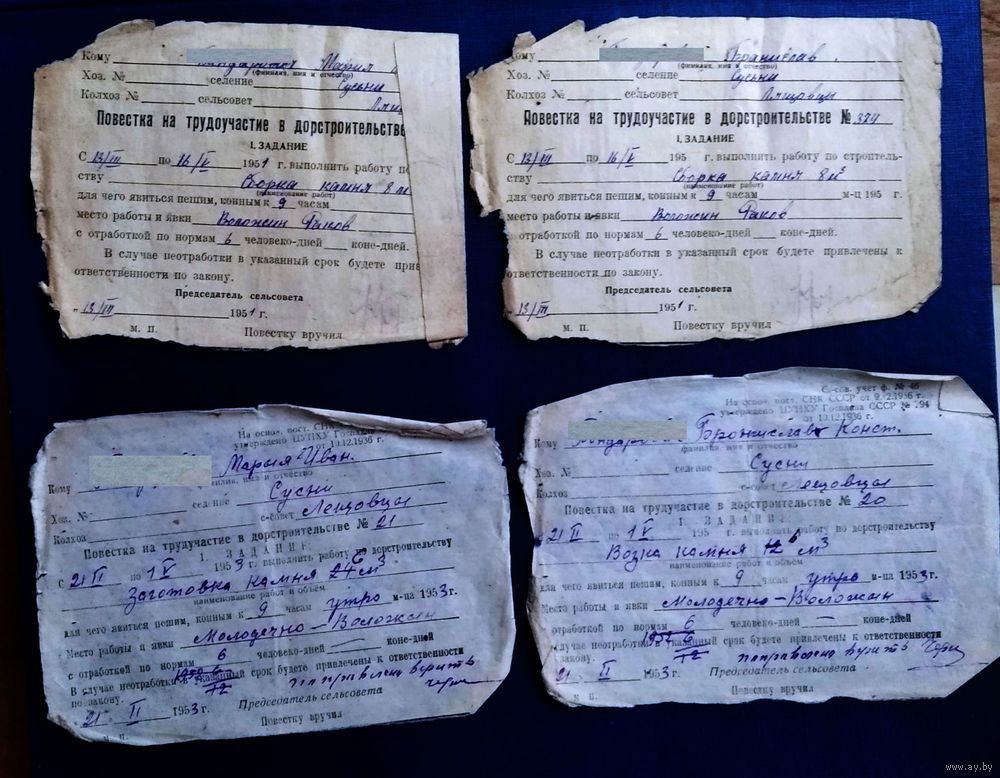 Кому Мария
(фамилия, имя и отчество)
Хоз. № селение Сусьни
Колхоз № сельсовет
Повестка на трудоучастие в дорстроительстве
I. ЗАДАНИЕ
С 13/III по 16/V 1951 г. выполнить работу по
ству Сборка камня 8 м
(наименование работ)
для чего явиться пешим, конным к 9 часам
место работы и явки Воложин Раков
с отработкой по нормам 6 человеко-дней коне-дней.
В случае неотработки в указанный срок будете прив
ответственности по закону.
Председатель сельсовета
13/III 1951 г.
м. п. Повестку вручил
Кому Бранислав
(фамилия, имя и отчество)
Хоз. № селение Сусьни
Колхоз № сельсовет
Повестка на трудоучастие в дорстроительстве № 324
I. ЗАДАНИЕ
С 13/III по 16/V 195 г. выполнить работу по строитель-
ству Сборка камня 8 м³
(наименование работ)
для чего явиться пешим, конным к 9 часам м-ц 195 г.
место работы и явки Воложин Раков
с отработкой по нормам 6 человеко-дней коне-дней.
В случае неотработки в указанный срок будете привлечены к
ответственности по закону.
Председатель сельсовета
13/III 1951 г.
м. п. Повестку вручил
На основ. пост. СНК
утверждено ЦУНХУ Госплана
10.12.1936 г.
Кому Марыя Иван.
фамилия, имя и отчество
Хоз. № селение Сусни
Колхоз с-совет Лещовцы
Повестка на трудучастие в дорстроительстве № 21
1. ЗАДАНИЕ
С 21 II по 1 V 1953 г. выполнить работу по дорстроительству
Заготовка камня 24 м³
наименование работ и объем
для чего явиться пешим, конным к 9 часам утро м-ца 1953 г.
Место работы и явки Молодечно-Воложин
с отработкой по нормам 6 человеко-дней — коне-дней
В случае неотработки в указанный срок будете привлечены к ответственности
по закону. поправлено верить
21 II 1953 г. Председатель сельсовета
м. п. Повестку вручил
С.-сов. учет ф. № 46
На основ. пост. СНК СССР от 9.12.1936 г.
утверждено ЦУНХУ Госплана СССР № 194
от 10.12.1936 г.
Кому Бронислав Конст.
фамилия, имя и отчество
Хоз. № селение Сусни
Колхоз с-совет Лещовцы
Повестка на трудучастие в дорстроительстве № 20
1. ЗАДАНИЕ
С 21 II по 1 V 195 г. выполнить работу по дорстроительству
Возка камня 12 м³
наименование работ и объем
для чего явиться пешим, конным к 9 часам утро м-ца 1953 г.
Место работы и явки Молодечно-Воложин
с отработкой по нормам 6 человеко-дней — коне-дней
В случае неотработки в указанный срок будете привлечены к ответственности
по закону. поправлено верить
21 II 1953 г. Председатель сельсовета
м. п. Повестку вручил
www.ay.by